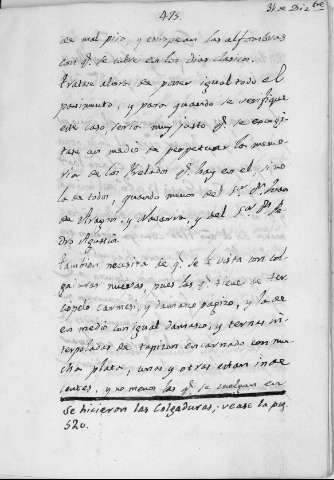 475.
31 de Dizbre
de mal piso, y estropean las alfombras
con q. se cubre en los dias clasicos.
Tratase ahora de poner igual todo el
pavimento, y para quando se verifique
este caso seria muy justo q. se escogi-
tase un medio de perpetuar las memo-
rias de los Prelados q. hay en el, si no
la de todos, quando menos del Sr. Dn. Juan
de Aragon, y Navarra, y del Sr. Dn. Pe-
dro Agustin.
Tambien necesita de q. se le vista con col-
gaduras nuevas, pues las q. tiene de ter-
ciopelo carmesi, y damasco pagizo, y la de
en medio con igual damasco, y ternas in-
terpoladas de tapizon encarnado con mu-
cha plata, unas y otras estan inde-
centes, y no menos las q. se cuelgan en
Se hicieron las Colgaduras; vease la pag.
520.